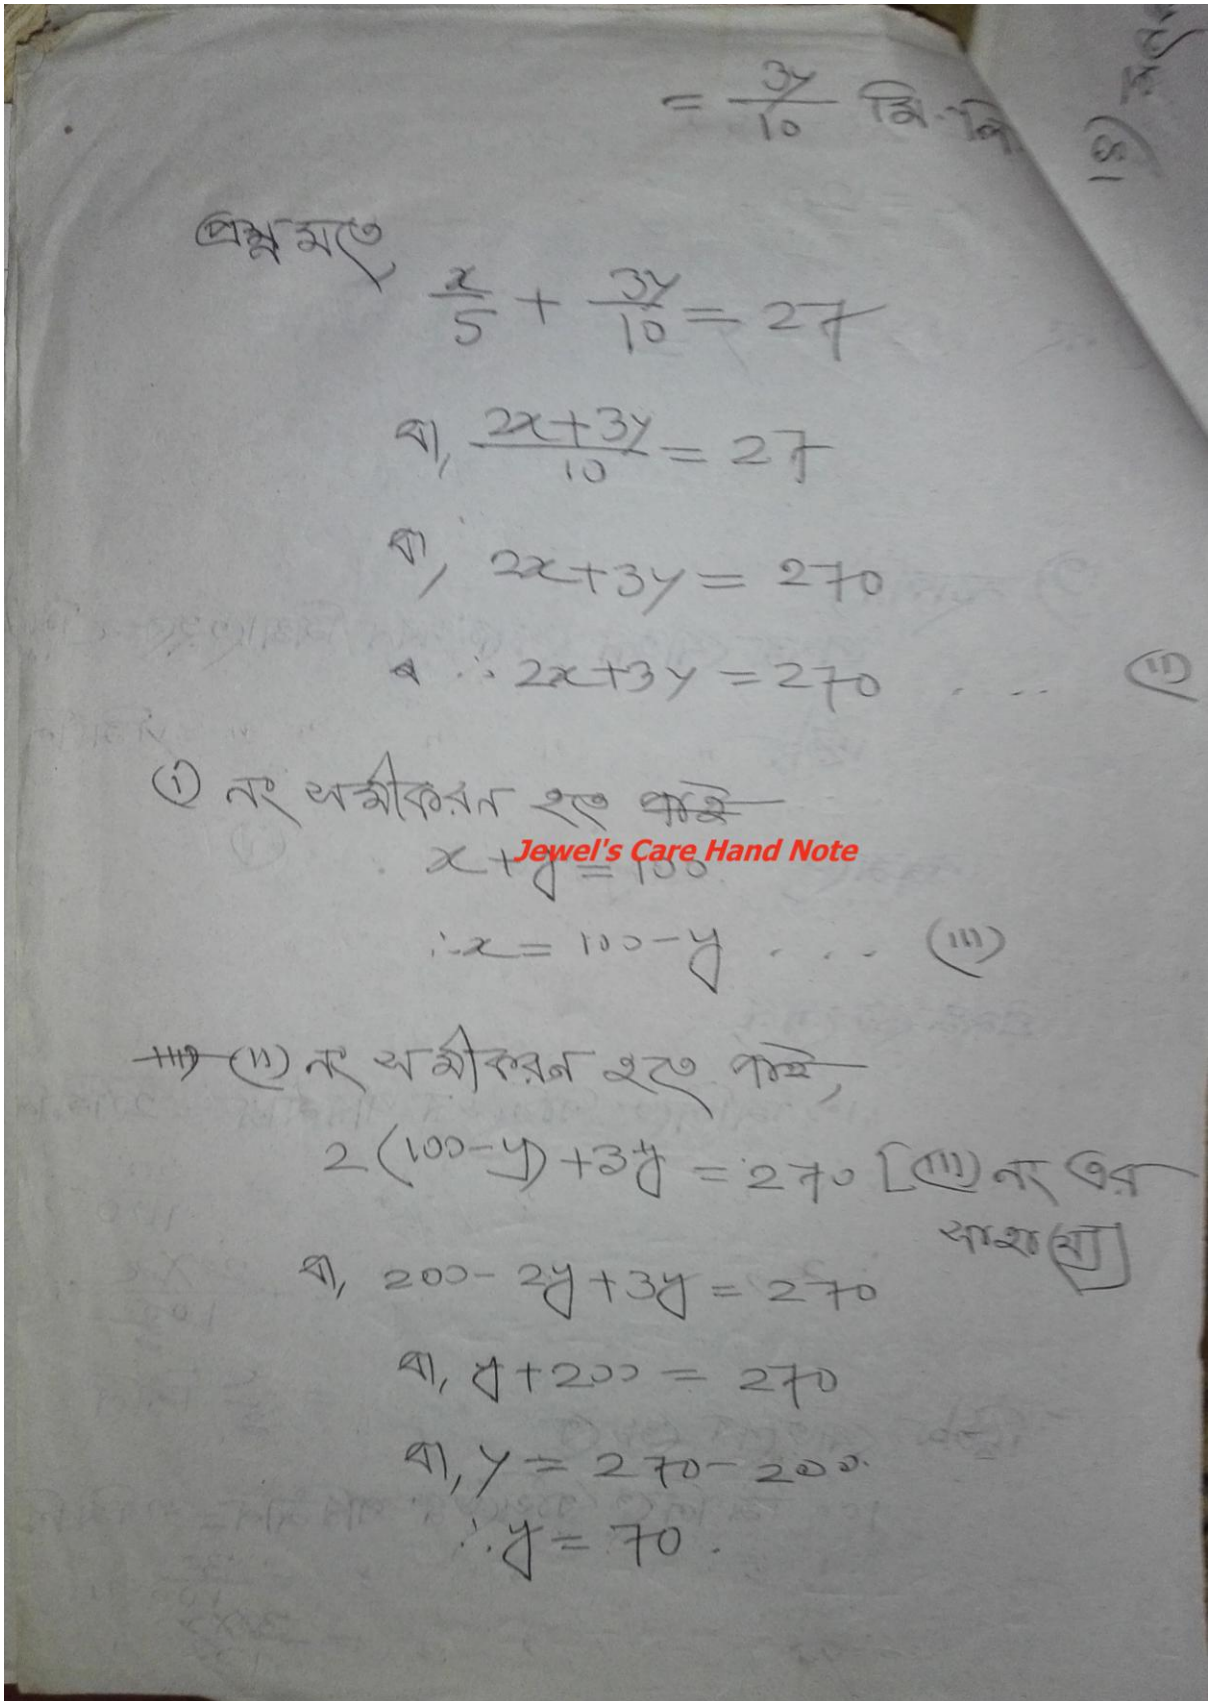 = 3y/10 মি.লি.
প্রশ্নমতে,
x/5 + 3y/10 = 27
বা, (2x+3y)/10 = 27
বা, 2x+3y = 270
∴ 2x+3y = 270 .... (ii)
(i) নং সমীকরন হতে পাই
Jewel's Care Hand Note
x+y = 100
∴ x = 100-y .... (iii)
(ii) নং সমীকরন হতে পাই,
2(100-y)+3y = 270 [(iii) নং এর
সাহায্যে]
বা, 200-2y+3y = 270
বা, y+200 = 270
বা, y = 270-200
∴ y = 70.